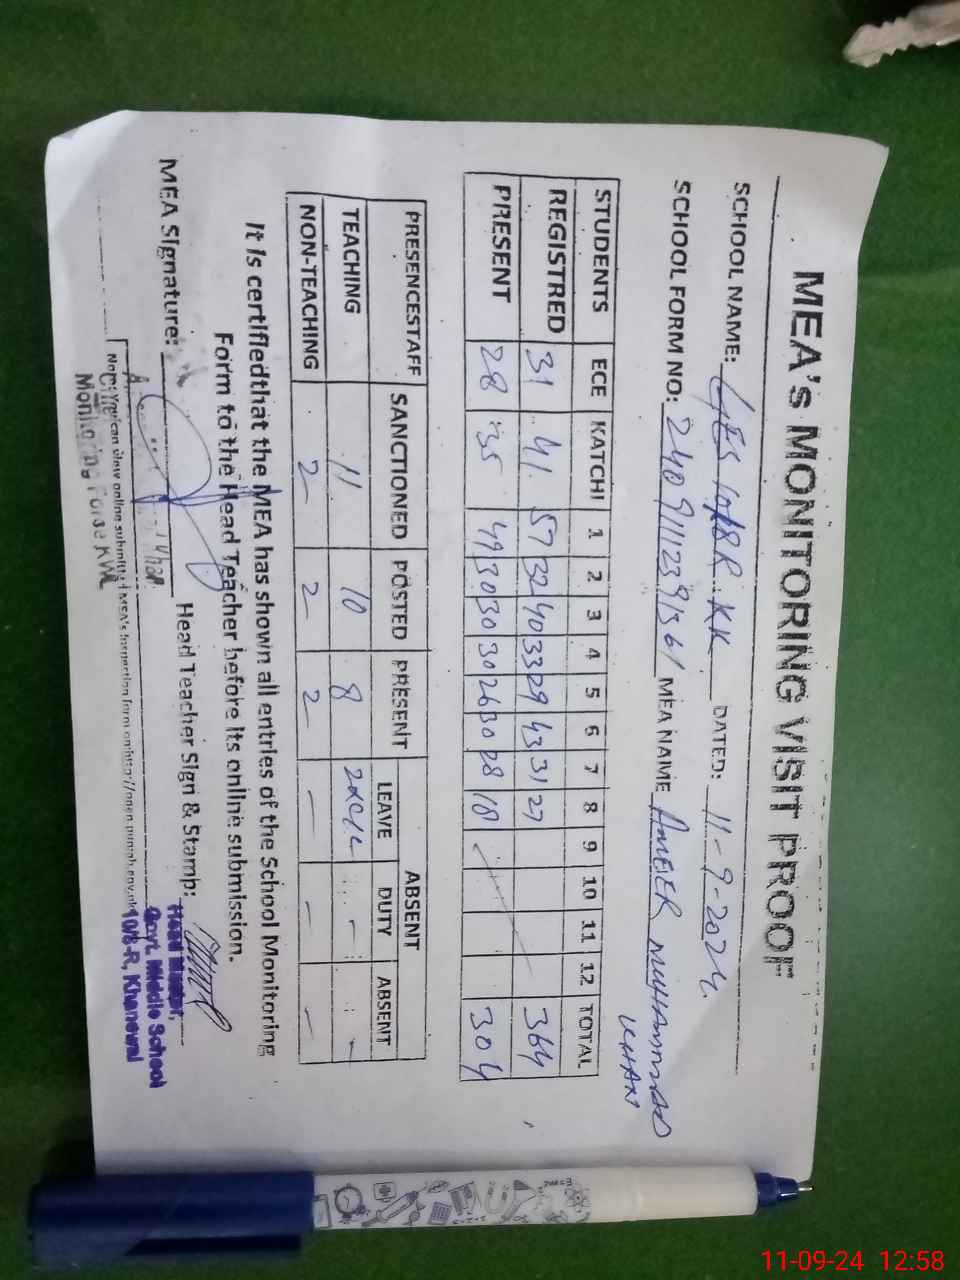 MEA's MONITORING VISIT PROOF
SCHOOL NAME: GES 10/8R KK DATED: 11-9-2024
SCHOOL FORM NO: MEA NAME AMEER MUHAMMAD
KHAN
STUDENTS ECE KATCHI 1 2 3 4 5 6 7 8 9 10 11 12 TOTAL
REGISTRED 31 41 57 32 40 33 29 43 31 27 364
PRESENT 28 35 49 30 30 30 26 30 28 18 304
PRESENCESTAFF SANCTIONED POSTED PRESENT ABSENT
LEAVE DUTY ABSENT
TEACHING 11 10 8 - -
NON-TEACHING 2 2 2 - - -
It is certifiedthat the MEA has shown all entries of the School Monitoring
Form to the Head Teacher before its online submission.
MEA Signature: Head Teacher Sign & Stamp:
Head Master,
Govt. Middle School
10/8-R, Khanewal
Khan
Monitoring Force KWL
Note: You can view online submitted MEA's Inspection form on
11-09-24 12:58